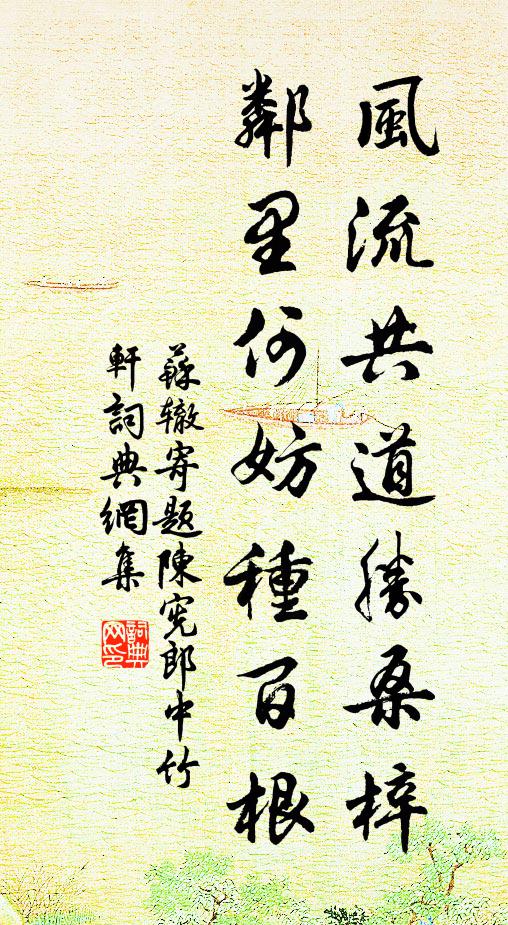 風流共道勝桑梓
鄰里何妨種百根
蘇辙寄題陳憲郎中竹
軒詞典網集
詞典
网印